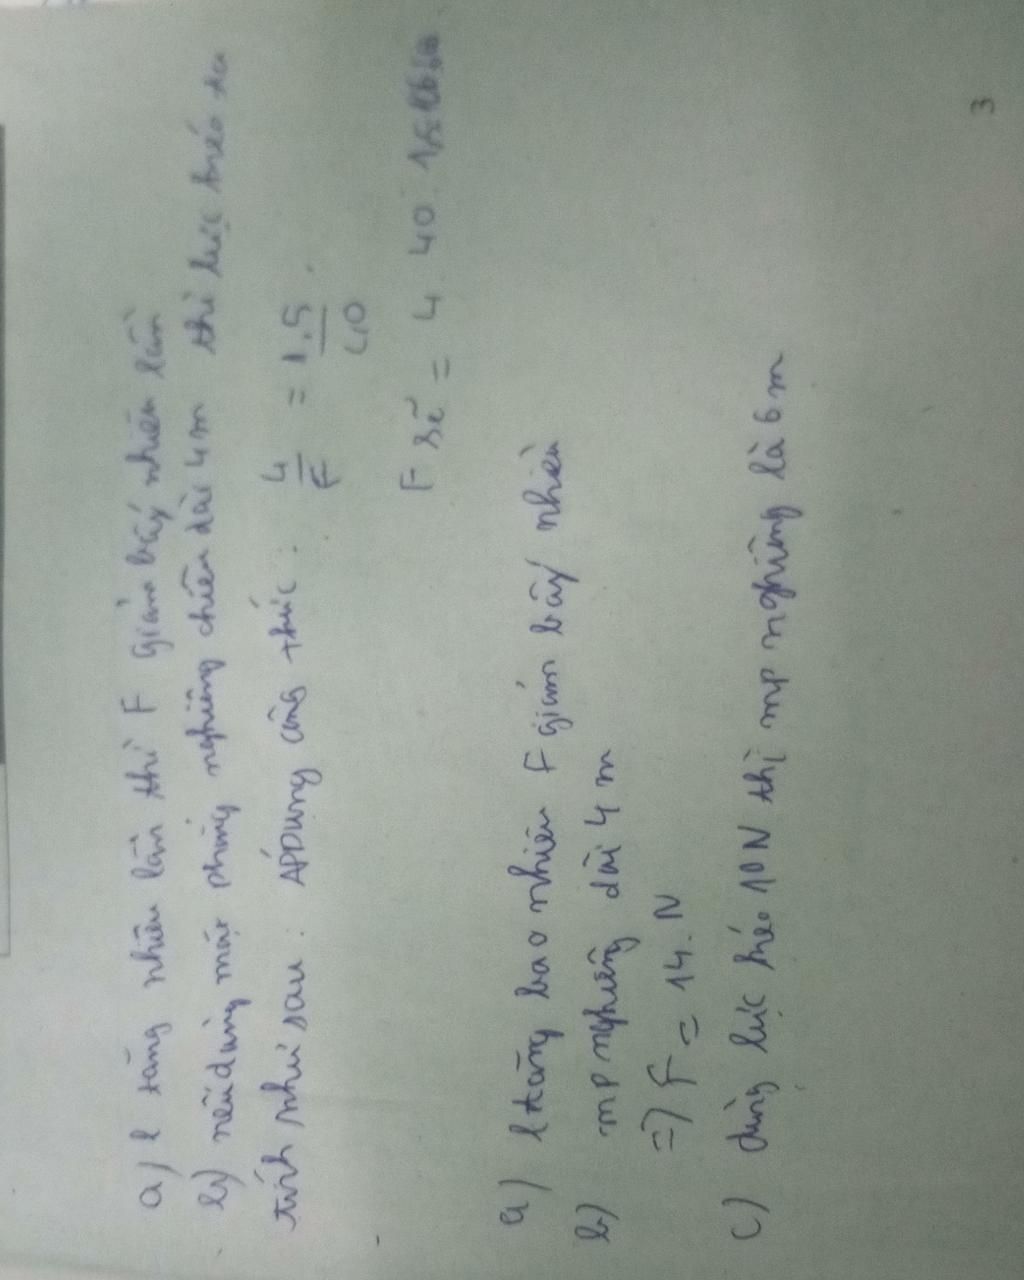 a) l tăng nhiêu lần thì F giảm bấy nhiêu lần
b) nếu dùng mặt phẳng nghiêng chiều dài 4m thì lực kéo ta
tính như sau: ÁPDụng công thức: 4/F = 1,5/40.
F sẽ = 4 40:
a) l tăng bao nhiêu F giảm bấy nhiêu
b) mp nghiêng dài 4 m
=> F = 14.N
c) dùng lực kéo 10N thì mp nghiêng là 6m
3